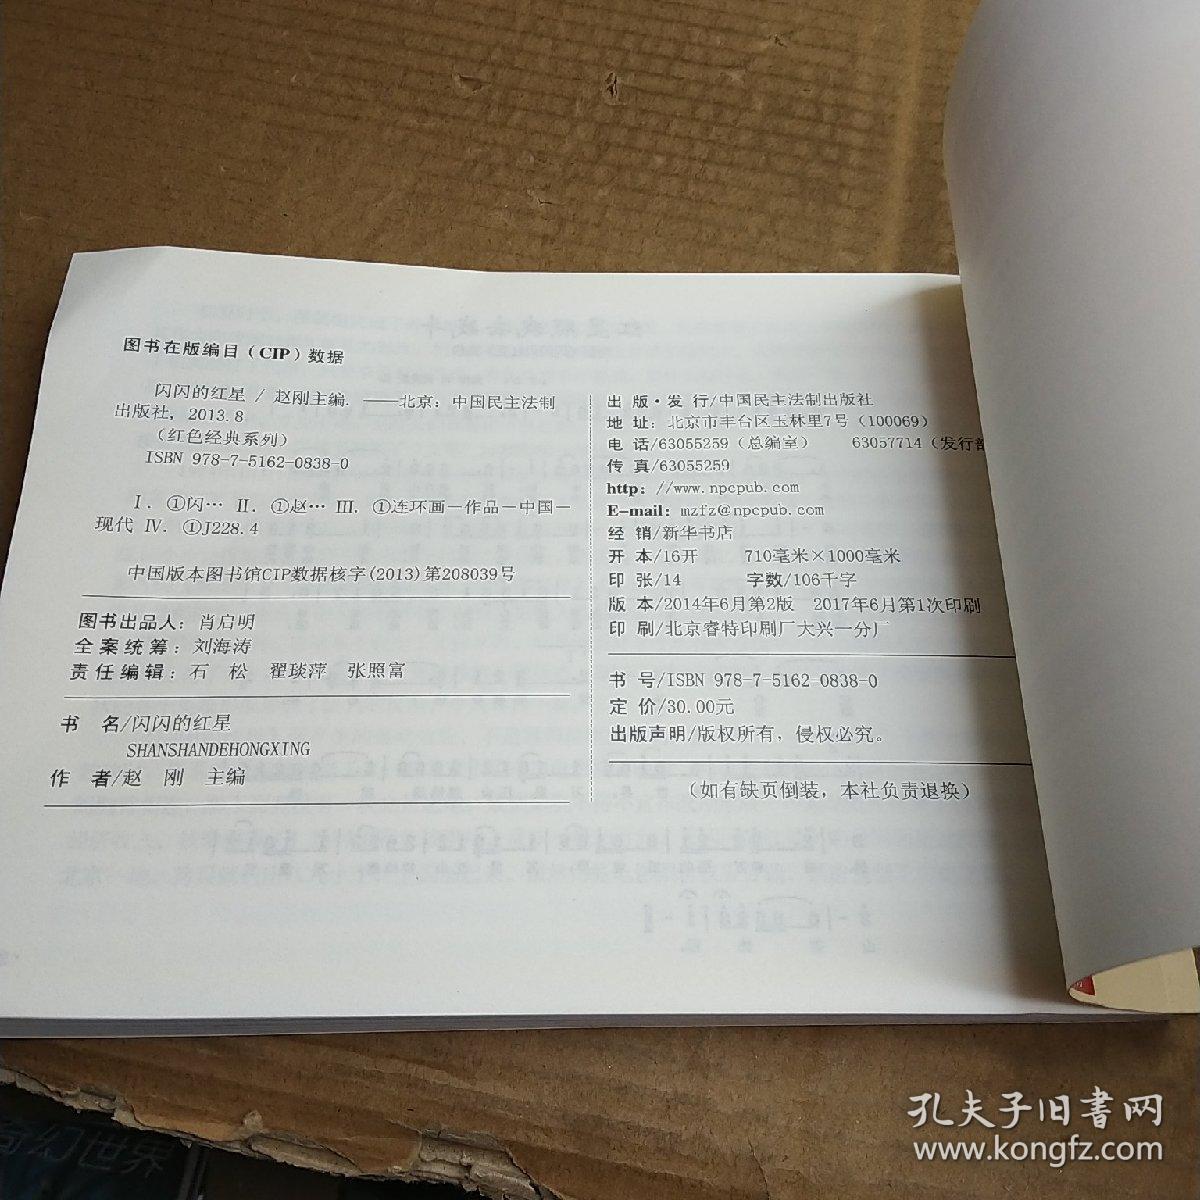 图书在版编目（CIP）数据
闪闪的红星 / 赵刚主编. ——北京：中国民主法制
出版社，2013.8
（红色经典系列）
ISBN 978-7-5162-0838-0
Ⅰ. ①闪… Ⅱ. ①赵… Ⅲ. ①连环画－作品－中国－
现代 Ⅳ. ①J228.4
中国版本图书馆CIP数据核字(2013)第208039号
图书出品人：肖启明
全案统筹：刘海涛
责任编辑：石 松 翟琰萍 张照富
书 名/闪闪的红星
SHANSHANDEHONGXING
作 者/赵 刚 主编
出 版·发 行/中国民主法制出版社
地 址：北京市丰台区玉林里7号（100069）
电 话/63055259（总编室） 63057714（发行部
传 真/63055259
http: //www.npcpub.com
E-mail: mzfz@npcpub.com
经 销/新华书店
开 本/16开 710毫米×1000毫米
印 张/14 字数/106千字
版 本/2014年6月第2版 2017年6月第1次印刷
印 刷/北京睿特印刷厂大兴一分厂
书 号/ISBN 978-7-5162-0838-0
定 价/30.00元
出版声明/版权所有，侵权必究。
（如有缺页倒装，本社负责退换）
幻世界
孔夫子旧书网
www.kongfz.com